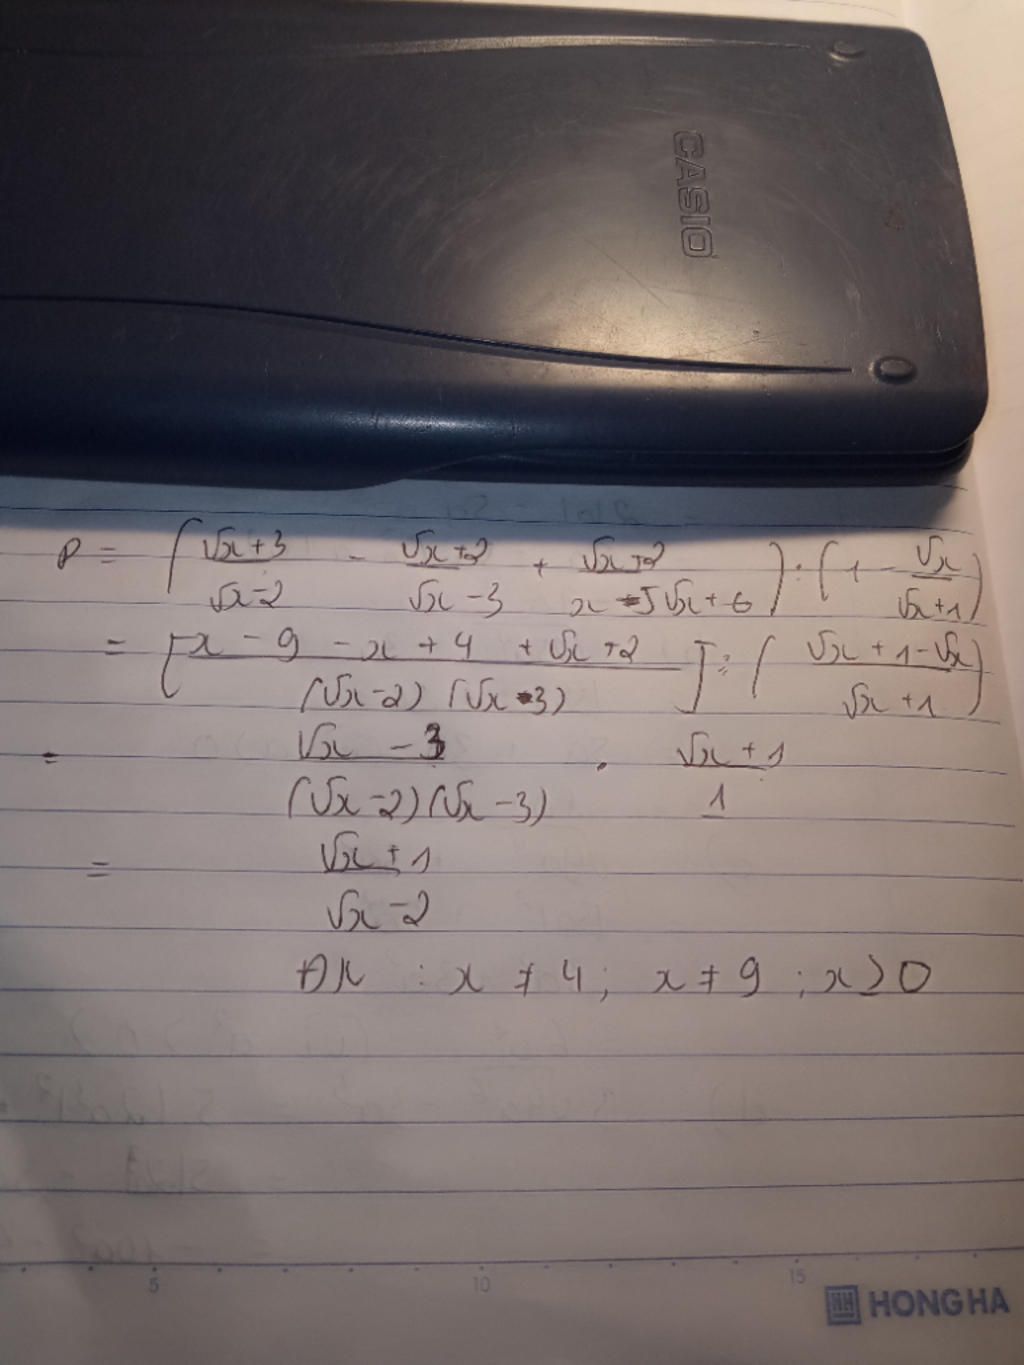 CASIO
P = (√x+3 / √x-2 - √x+2 / √x-3 + √x+2 / x-5√x+6) : (1 - √x / √x+1)
= [x - 9 - x + 4 + √x+2 / (√x-2)(√x-3)] : (√x+1-√x / √x+1)
= √x - 3 / (√x-2)(√x-3) . √x+1 / 1
= √x+1 / √x-2
ĐK : x ≠ 4; x ≠ 9; x ≥ 0
5 10 15
HH HONG HA